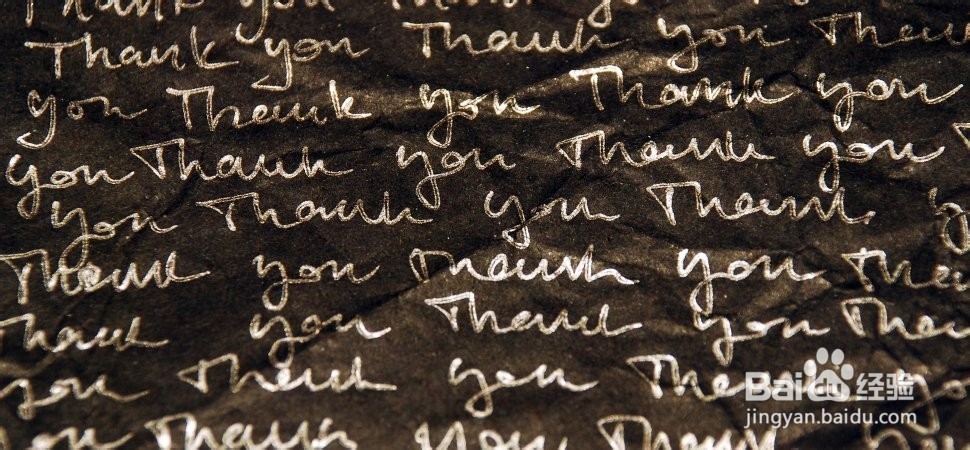 Thank you Thank you
Thank you Thank you Thank
you Thank you Thank you
you Thank you Thank you
you Thank you Thank
Thank you Thank you
Thank you Thank you Thank
you Thank you Thank you
you Thank you Thank you
Baidu 经验
jingyan.baidu.com